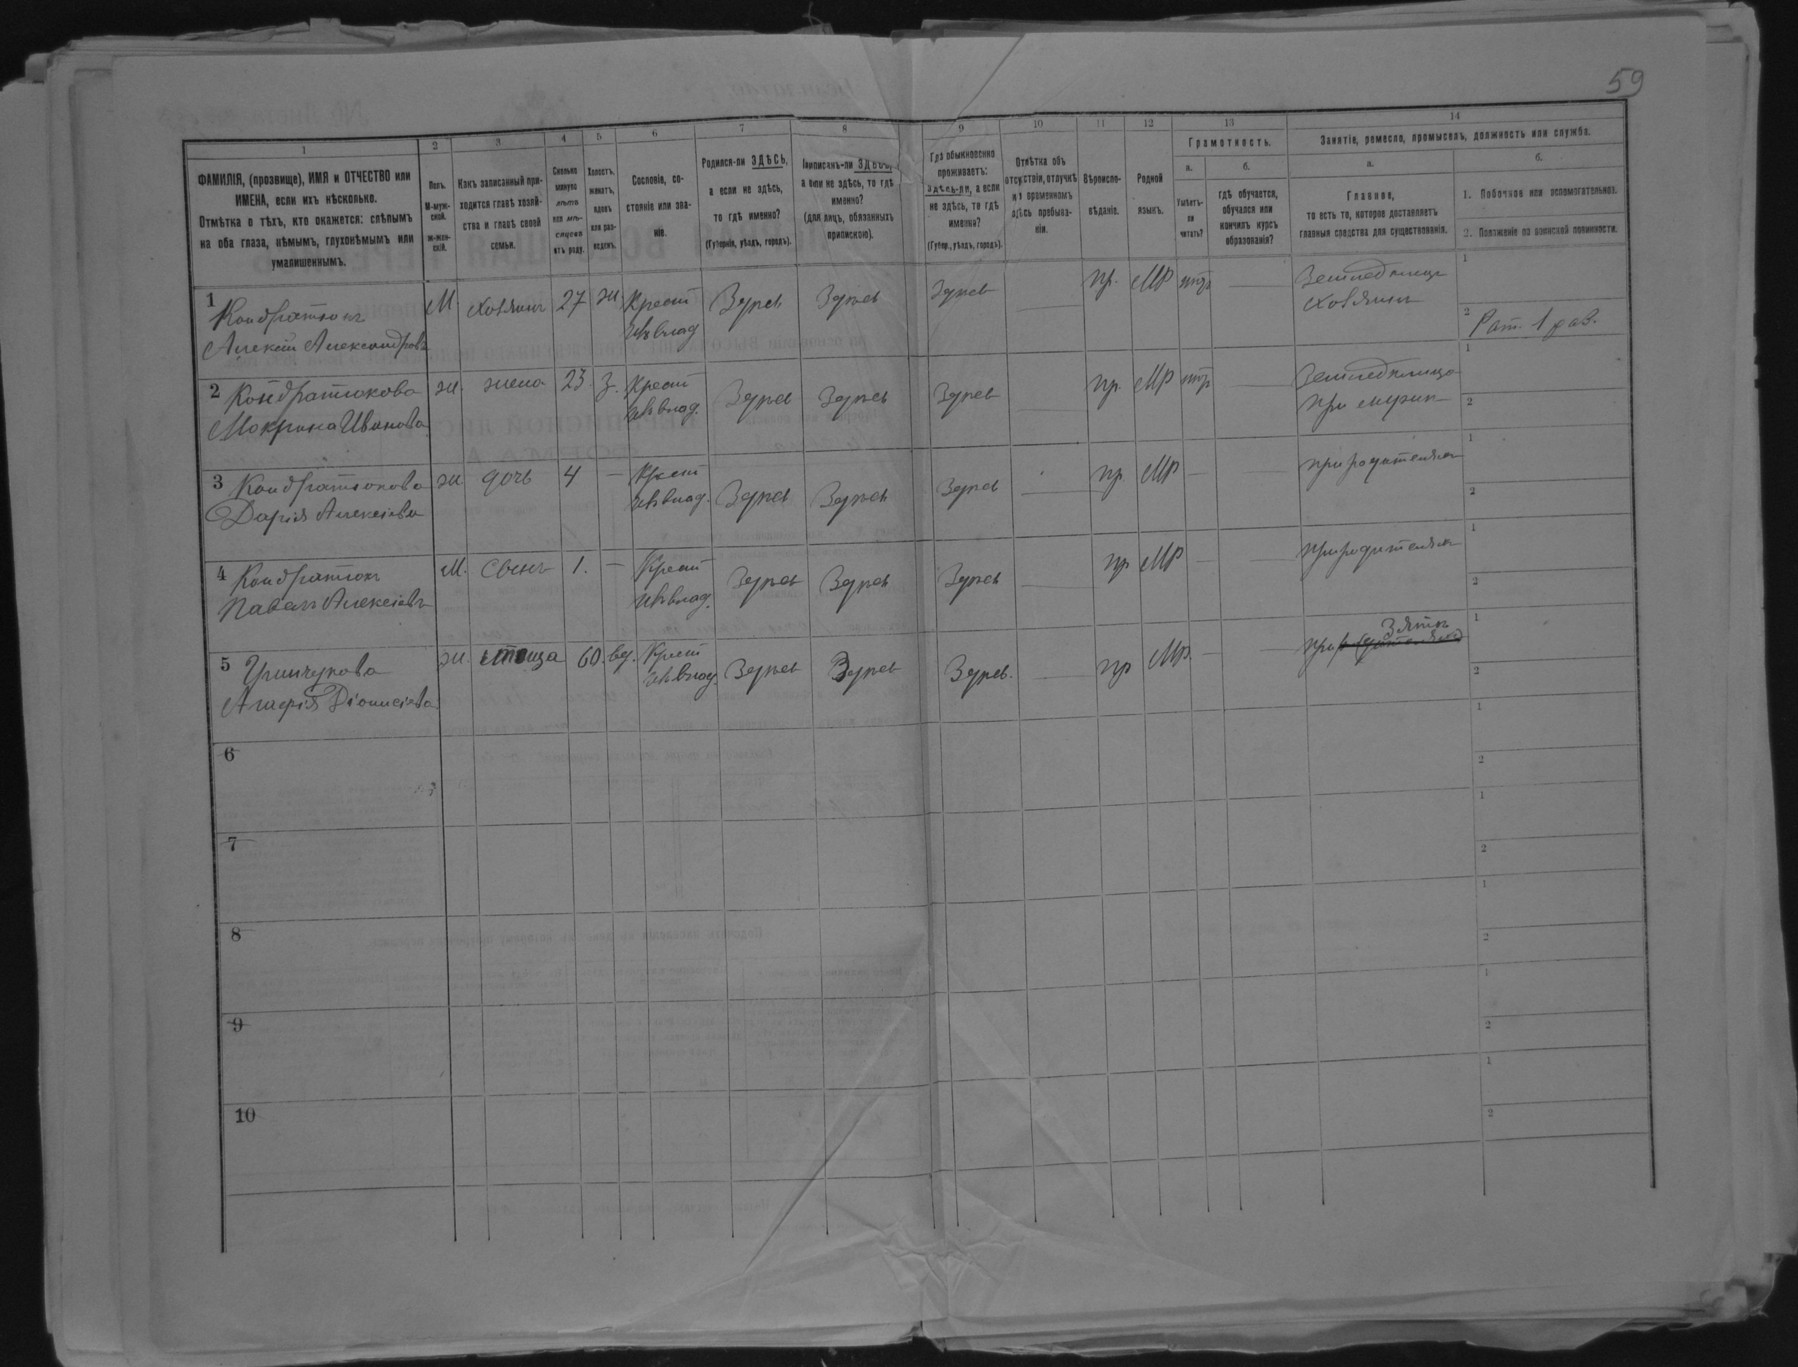 59
1 2 3 4 5 6 7 8 9 10 11 12 13 14
ФАМИЛІЯ, (прозвище), ИМЯ и ОТЧЕСТВО или ИМЕНА, если ихъ нѣсколько.
Отмѣтка о тѣхъ, кто окажется: слѣпымъ на оба глаза, нѣмымъ, глухонѣмымъ или умалишеннымъ.
Полъ.
М-мужской.
ж-женскій.
Какъ записанный приходится главѣ хозяйства и главѣ своей семьи.
Сколько минуло лѣтъ или мѣсяцевъ отъ роду.
Холостъ, женатъ, вдовъ или разведенъ.
Сословіе, состояніе или званіе.
Родился-ли ЗДѢСЬ, а если не здѣсь, то гдѣ именно?
(Губернія, уѣздъ, городъ).
Приписанъ-ли ЗДѢСЬ, а если не здѣсь, то гдѣ именно?
(для лицъ, обязанныхъ припискою).
Гдѣ обыкновенно проживаетъ: здѣсь-ли, а если не здѣсь, то гдѣ именно?
(Губер., уѣздъ, городъ).
Отмѣтка объ отсутствіи, отлучкѣ и о временномъ здѣсь пребываніи.
Вѣроисповѣданіе.
Родной языкъ.
Грамотность.
а.
Умѣетъ-ли читать?
б.
гдѣ обучается, обучался или кончилъ курсъ образованія?
Занятіе, ремесло, промыселъ, должность или служба.
а.
Главное,
то есть то, которое доставляетъ главныя средства для существованія.
б.
1. Побочное или вспомогательное.
2. Положеніе по воинской повинности.
1 Кондратюкъ М хозяинъ 27 ж Крест Здѣсь Здѣсь Здѣсь — пр. МР — Земледѣлецъ 1
Алексѣй Александровъ изъ влад хозяинъ 2 Рат. 1 раз.
2 Кондратюкова ж. жена 23 з. Крест Здѣсь Здѣсь Здѣсь — пр. МР — Земледѣлица 1
Мокрина Иванова изъ влад. при мужѣ 2
3 Кондратюкова ж дочь 4 — Крест Здѣсь Здѣсь Здѣсь — пр МР — — при родителяхъ 1
Дарія Алексіева изъ влад. 2
4 Кондратюкъ М. сынъ 1. — Крест Здѣсь Здѣсь Здѣсь — пр МР — — при родителяхъ 1
Павелъ Алексіевъ изъ влад. 2
5 ж. теща 60. вд. Крест Здѣсь Здѣсь Здѣсь. — пр Мр. — — при родителяхъ зятѣ 1
Діонисіева изъ влад. 2
6 1
2
7 1
2
8 1
2
9 1
2
10 1
2